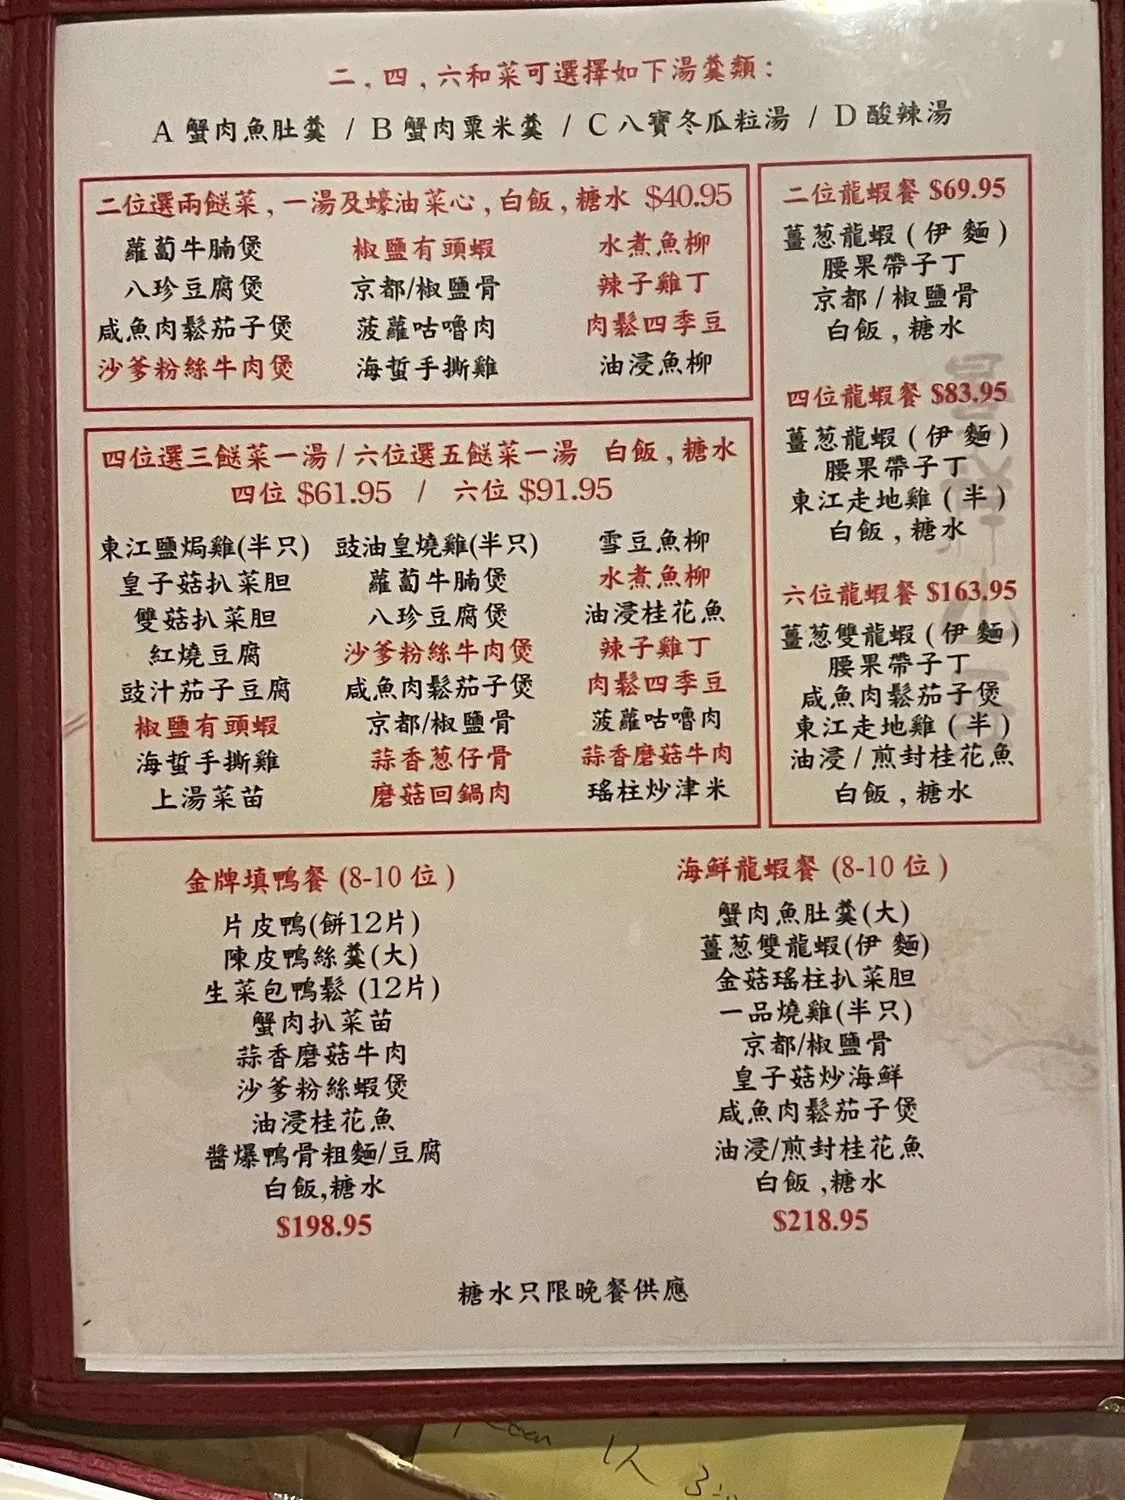 二,四,六和菜可選擇如下湯羹類:
A 蟹肉魚肚羹 / B 蟹肉粟米羹 / C 八寶冬瓜粒湯 / D 酸辣湯
二位選兩餸菜,一湯及蠔油菜心,白飯,糖水 $40.95
蘿蔔牛腩煲 椒鹽有頭蝦 水煮魚柳
八珍豆腐煲 京都/椒鹽骨 辣子雞丁
咸魚肉鬆茄子煲 菠蘿咕嚕肉 肉鬆四季豆
沙爹粉絲牛肉煲 海蜇手撕雞 油浸魚柳
四位選三餸菜一湯/六位選五餸菜一湯 白飯,糖水
四位 $61.95 / 六位 $91.95
東江鹽焗雞(半只) 豉油皇燒雞(半只) 雪豆魚柳
皇子菇扒菜胆 蘿蔔牛腩煲 水煮魚柳
雙菇扒菜胆 八珍豆腐煲 油浸桂花魚
紅燒豆腐 沙爹粉絲牛肉煲 辣子雞丁
豉汁茄子豆腐 咸魚肉鬆茄子煲 肉鬆四季豆
椒鹽有頭蝦 京都/椒鹽骨 菠蘿咕嚕肉
海蜇手撕雞 蒜香葱仔骨 蒜香磨菇牛肉
上湯菜苗 磨菇回鍋肉 瑤柱炒津米
二位龍蝦餐 $69.95
薑葱龍蝦(伊 麵)
腰果帶子丁
京都/椒鹽骨
白飯,糖水
四位龍蝦餐 $83.95
薑葱龍蝦(伊 麵)
腰果帶子丁
東江走地雞(半)
白飯,糖水
六位龍蝦餐 $163.95
薑葱雙龍蝦(伊 麵)
腰果帶子丁
咸魚肉鬆茄子煲
東江走地雞(半)
油浸/煎封桂花魚
白飯,糖水
金牌填鴨餐 (8-10 位)
片皮鴨(餅12片)
陳皮鴨絲羹(大)
生菜包鴨鬆 (12片)
蟹肉扒菜苗
蒜香磨菇牛肉
沙爹粉絲蝦煲
油浸桂花魚
醬爆鴨骨粗麵/豆腐
白飯,糖水
$198.95
海鮮龍蝦餐 (8-10 位)
蟹肉魚肚羹(大)
薑葱雙龍蝦(伊 麵)
金菇瑤柱扒菜胆
一品燒雞(半只)
京都/椒鹽骨
皇子菇炒海鮮
咸魚肉鬆茄子煲
油浸/煎封桂花魚
白飯 ,糖水
$218.95
糖水只限晚餐供應